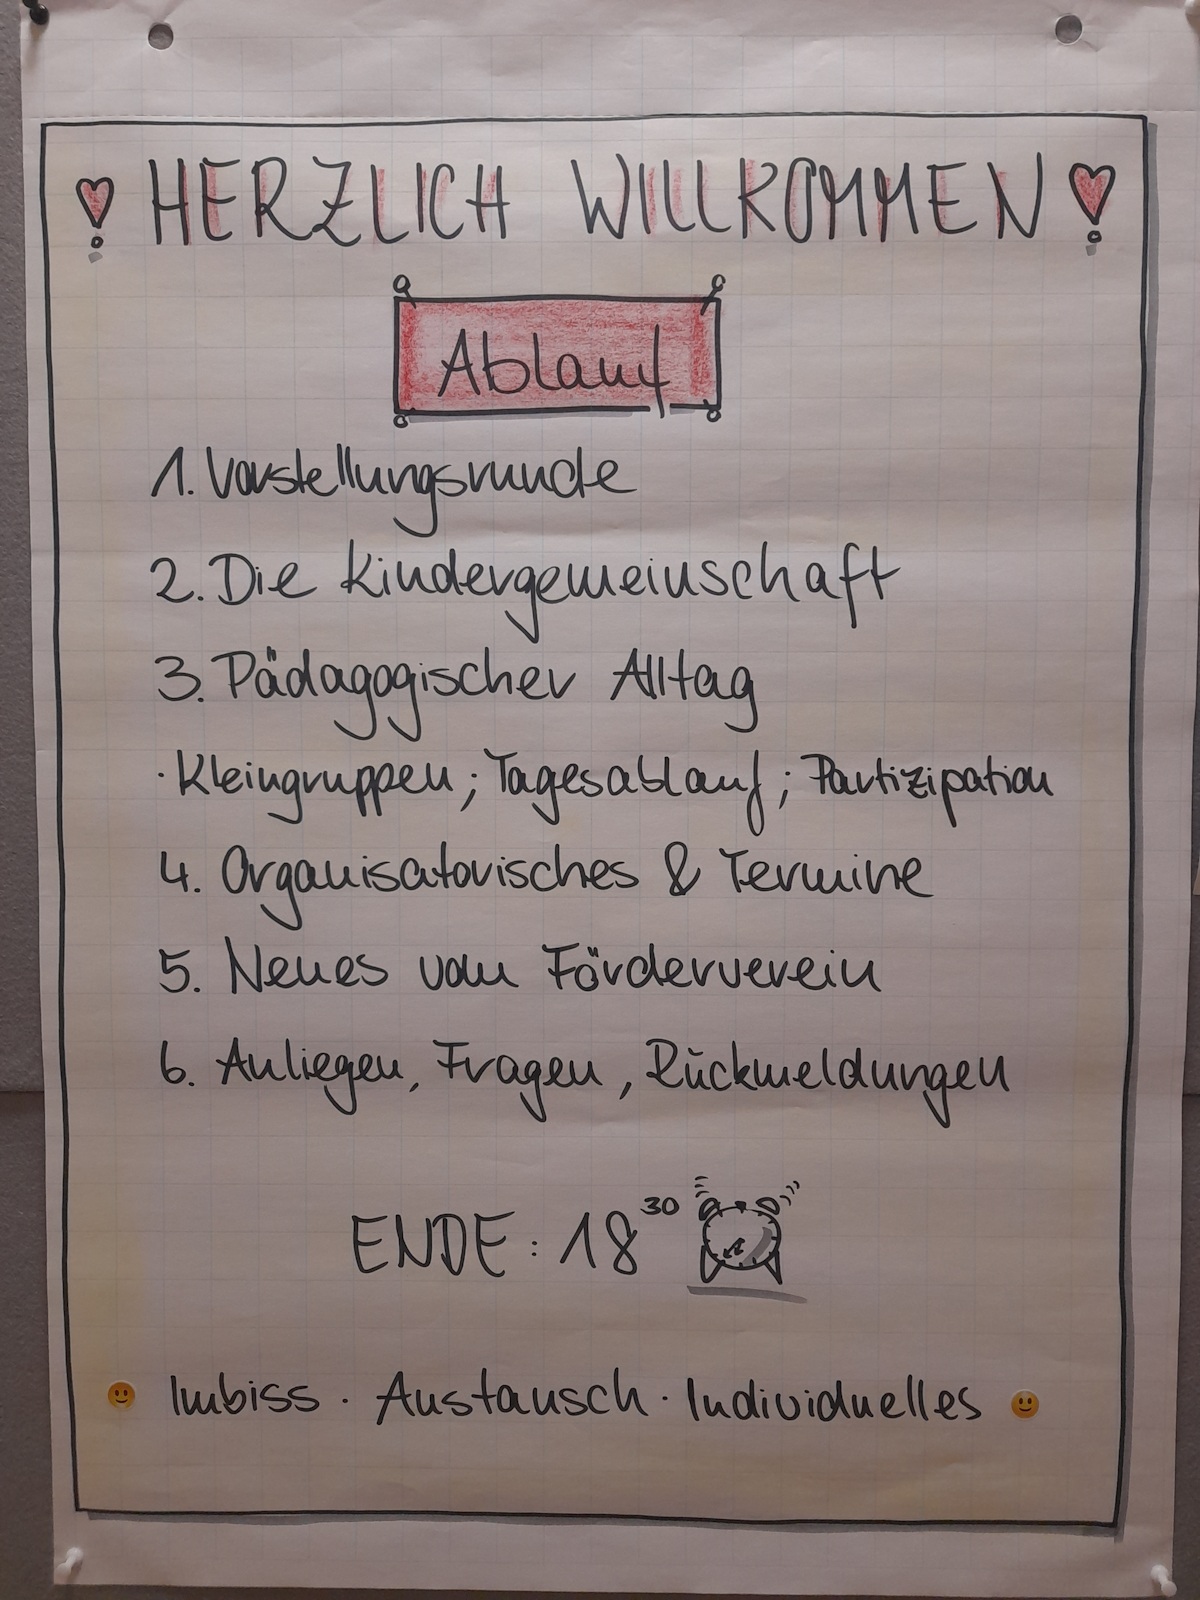 HERZLICH WILLKOMMEN
Ablauf
1. Vorstellungsrunde
2. Die Kindergemeinschaft
3. Pädagogischer Alltag
· Kleingruppen ; Tagesablauf ; Partizipation
4. Organisatorisches & Termine
5. Neues vom Förderverein
6. Anliegen, Fragen, Rückmeldungen
ENDE : 18³⁰
🙂 Imbiss · Austausch · Individuelles 🙂